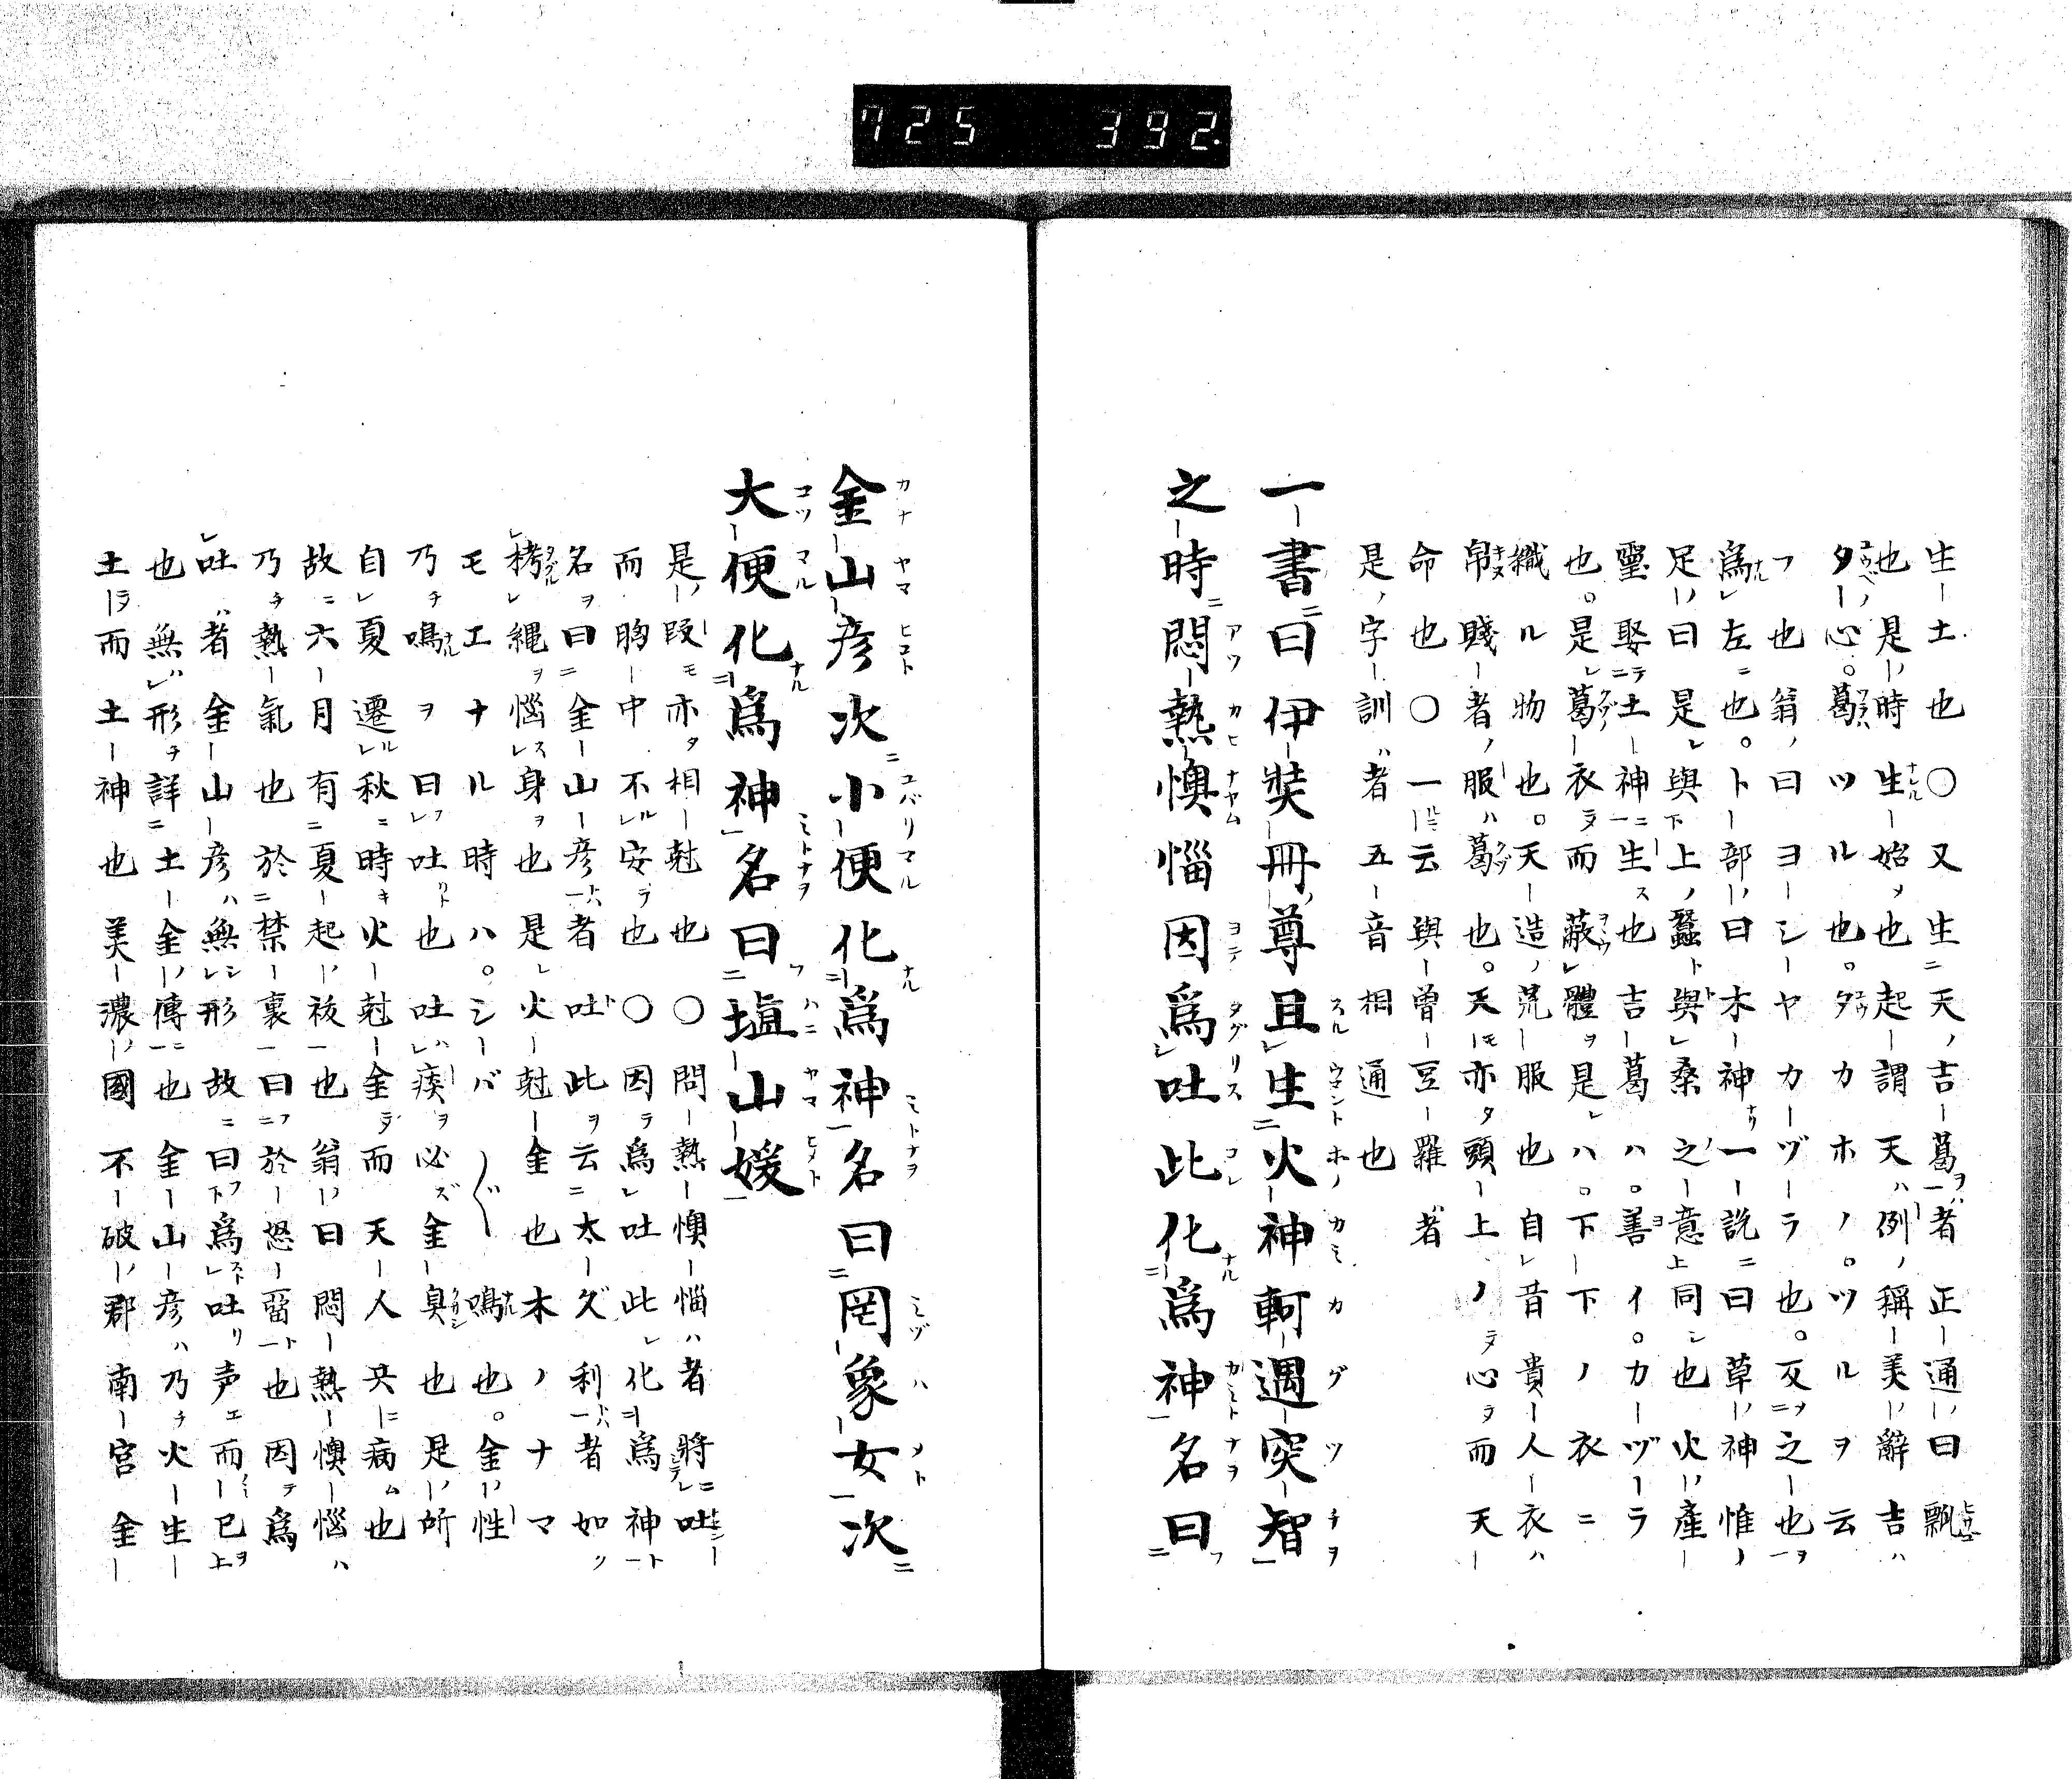 725 392.
生土也〇又生天ノ吉葛ヲバ者正通曰飄
也是時生始メ也起謂天ハ例ノ稱美辭吉ハ
タ心。葛ツル也。タカホノ。ツルヲ云
フ也翁ノ曰ヨシヤカーヅーラ也。反之也
爲左ニ也。ト部曰木神一説ニ曰草神惟ノ
足曰是與上ノ蠶ト與桑之意同シ也火產
靈娶テ土神ニ生ス也吉葛ハ。善イ。カーヅーラ
也。是レ葛衣而蔽體ヲ是レハ。下下ノ衣ニ
織ル物也。天造ノ荒服也自昔貴人衣ハ
帛賤者ノ服ハ葛也。天亦タ頭上ノ心ヲ而天
命也〇一云與曽豆羅者
是ノ字訓者五音相通也
一書曰伊弉冊尊且生火神軻遇突智
之時悶熱懊惱因爲吐此化爲神名曰
金山彦次小便化爲神名曰罔象女次
大便化爲神名曰埴山媛
是段モ亦タ相尅也〇問熱懊惱ハ者將吐
而胸中不安也〇因爲吐此レ化爲神
名ヲ曰金山彦者吐此ヲ云太久利者如ク
栲縄ヲ惱身ヲ也是レ火尅金也木ノナマ
モエナル時ハ。シーバ〱鳴也。金性
乃チ鳴ヲ曰吐也吐ハ痰ヲ必ズ金臭也是所
自夏遷秋ニ時火尅金而天人共病ム也
故ニ六月有夏起祓也翁曰悶熱懊惱ハ
乃チ熱氣也於禁裏曰於恐畱也因テ爲
吐者金山彦ハ無形故ニ曰爲吐声而已
也無形詳ニ土金傳也金山彦ハ乃チ火生
土而土神也美濃國不破郡南宮金